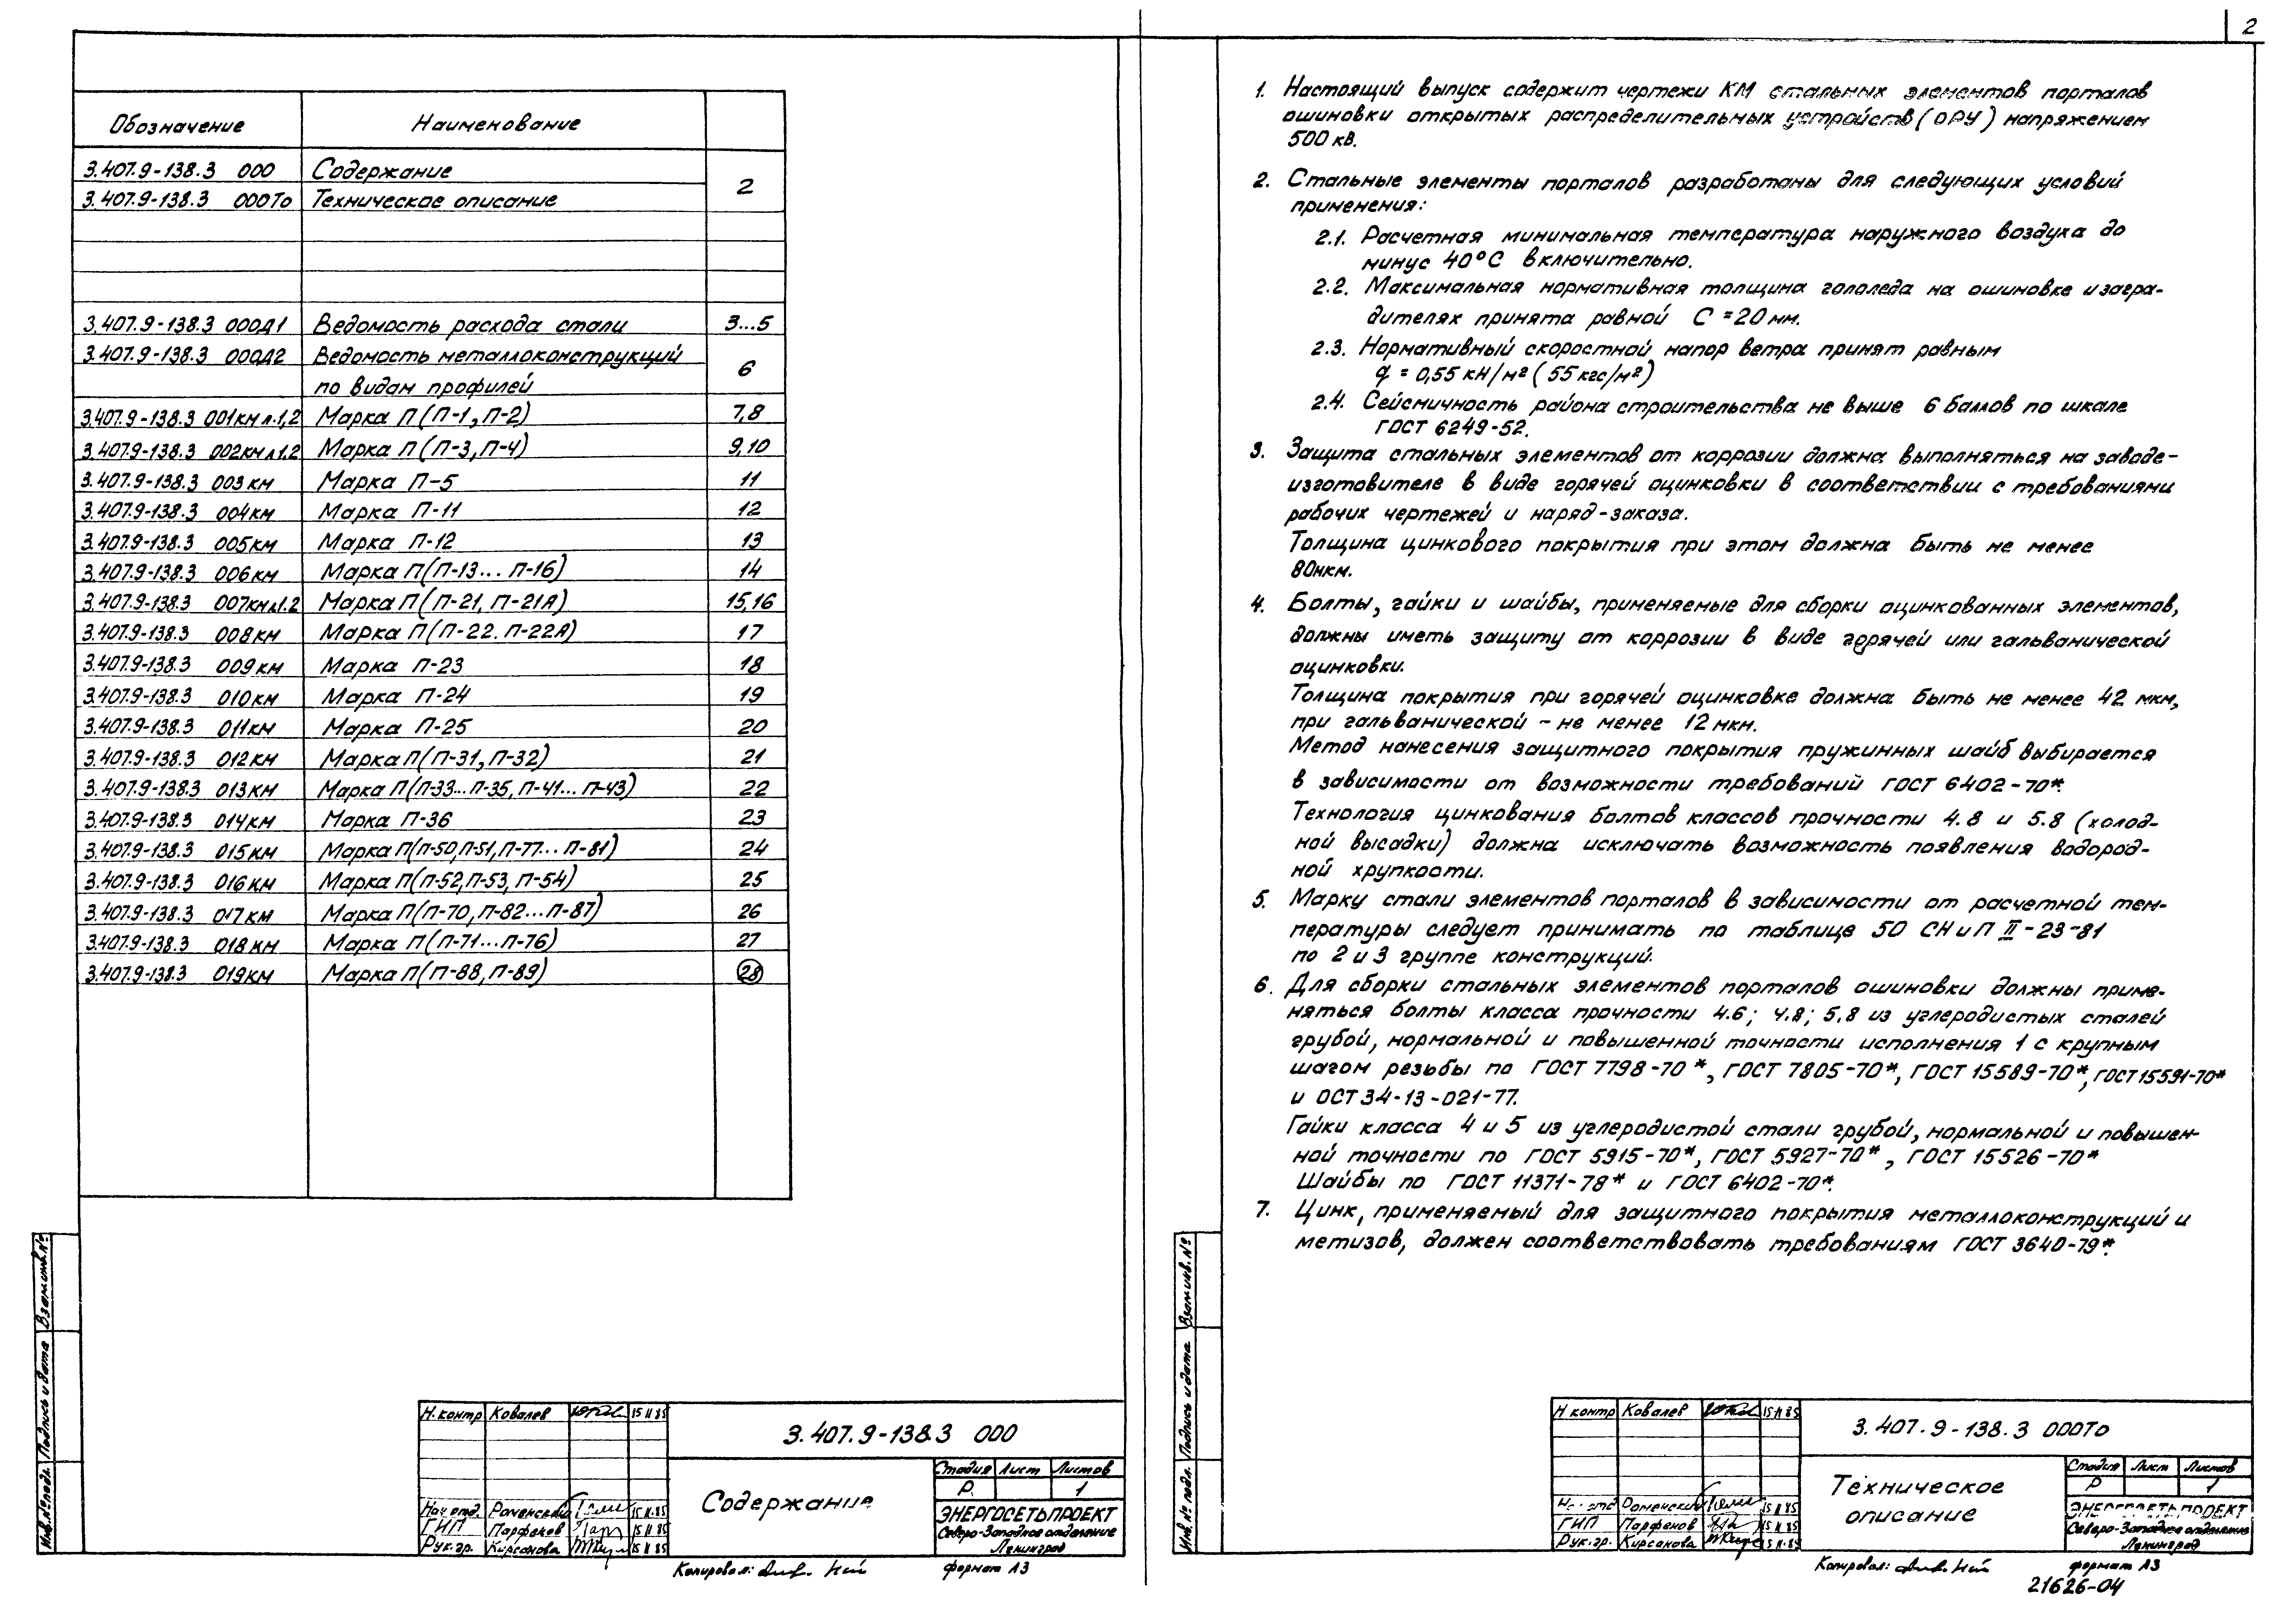 2
Обозначение Наименование
3.407.9-138.3 000 Содержание 2
3.407.9-138.3 000ТО Техническое описание
3.407.9-138.3 000Д1 Ведомость расхода стали 3...5
3.407.9-138.3 000Д2 Ведомость металлоконструкций 6
по видам профилей
3.407.9-138.3 001КМ л.1,2 Марка П (П-1, П-2) 7,8
3.407.9-138.3 002КМ л1.2 Марка П (П-3, П-4) 9,10
3.407.9-138.3 003 КМ Марка П-5 11
3.407.9-138.3 004КМ Марка П-11 12
3.407.9-138.3 005КМ Марка П-12 13
3.407.9-138.3 006КМ Марка П(П-13... П-16) 14
3.407.9-138.3 007КМл1.2 Марка П (П-21, П-21А) 15,16
3.407.9-138.3 008КМ Марка П(П-22. П-22А) 17
3.407.9-138.3 009КМ Марка П-23 18
3.407.9-138.3 010КМ Марка П-24 19
3.407.9-138.3 011КМ Марка П-25 20
3.407.9-138.3 012КМ Марка П(П-31, П-32) 21
3.407.9-138.3 013КМ Марка П(П-33...П-35, П-41... П-43) 22
3.407.9-138.3 014КМ Марка П-36 23
3.407.9-138.3 015КМ Марка П(П-50,П-51, П-77... П-81) 24
3.407.9-138.3 016КМ Марка П(П-52,П-53, П-54) 25
3.407.9-138.3 017КМ Марка П(П-70, П-82...П-87) 26
3.407.9-138.3 018КМ Марка П(П-71...П-76) 27
3.407.9-138.3 019КМ Марка П(П-88, П-89) 28
Инв.№ подл. Подпись и дата Взам.инв.№
Н.контр Ковалев 15 11 85
3.407.9-138.3 000
Стадия Лист Листов
Р. 1
Содержание
Нач отд. Роменский 15.11.85
ГИП Парфенов 15 11 85
Рук.гр. Кирсанова 15 11 85
ЭНЕРГОСЕТЬПРОЕКТ
Северо-Западное отделение
Ленинград
Копировал: формат А3
1. Настоящий выпуск содержит чертежи КМ стальных элементов порталов
ошиновки открытых распределительных устройств (ОРУ) напряжением
500 кВ.
2. Стальные элементы порталов разработаны для следующих условий
применения:
2.1. Расчетная минимальная температура наружного воздуха до
минус 40°С включительно.
2.2. Максимальная нормативная толщина гололеда на ошиновке и загра-
дителях принята равной С = 20 мм.
2.3. Нормативный скоростной напор ветра принят равным
q = 0,55 кН/м² (55 кгс/м²)
2.4. Сейсмичность района строительства не выше 6 баллов по шкале
ГОСТ 6249-52.
3. Защита стальных элементов от коррозии должна выполняться на заводе-
изготовителе в виде горячей оцинковки в соответствии с требованиями
рабочих чертежей и наряд-заказа.
Толщина цинкового покрытия при этом должна быть не менее
80мкм.
4. Болты, гайки и шайбы, применяемые для сборки оцинкованных элементов,
должны иметь защиту от коррозии в виде горячей или гальванической
оцинковки.
Толщина покрытия при горячей оцинковке должна быть не менее 42 мкм,
при гальванической - не менее 12 мкм.
Метод нанесения защитного покрытия пружинных шайб выбирается
в зависимости от возможности требований ГОСТ 6402-70*.
Технология цинкования болтов классов прочности 4.8 и 5.8 (холод-
ной высадки) должна исключать возможность появления водород-
ной хрупкости.
5. Марку стали элементов порталов в зависимости от расчетной тем-
пературы следует принимать по таблице 50 СНиП II-23-81
по 2 и 3 группе конструкций.
6. Для сборки стальных элементов порталов ошиновки должны приме-
няться болты класса прочности 4.6; 4.8; 5.8 из углеродистых сталей
грубой, нормальной и повышенной точности исполнения 1 с крупным
шагом резьбы по ГОСТ 7798-70*, ГОСТ 7805-70*, ГОСТ 15589-70*, ГОСТ 15591-70*
и ОСТ 34-13-021-77.
Гайки класса 4 и 5 из углеродистой стали грубой, нормальной и повышен-
ной точности по ГОСТ 5915-70*, ГОСТ 5927-70*, ГОСТ 15526-70*
Шайбы по ГОСТ 11371-78* и ГОСТ 6402-70*.
7. Цинк, применяемый для защитного покрытия металлоконструкций и
метизов, должен соответствовать требованиям ГОСТ 3640-79*.
Инв.№ подл. Подпись и дата Взам инв.№
Н контр Ковалев 15 11 85
3.407.9-138.3 000ТО
Стадия Лист Листов
Р 1
Техническое
описание
Нач отд Роменский 15 11 85
ГИП Парфенов 15 11 85
Рук.гр. Кирсанова 15 11 85
ЭНЕРГОСЕТЬПРОЕКТ
Северо-Западное отделение
Ленинград
Копировал: формат А3
21626-04